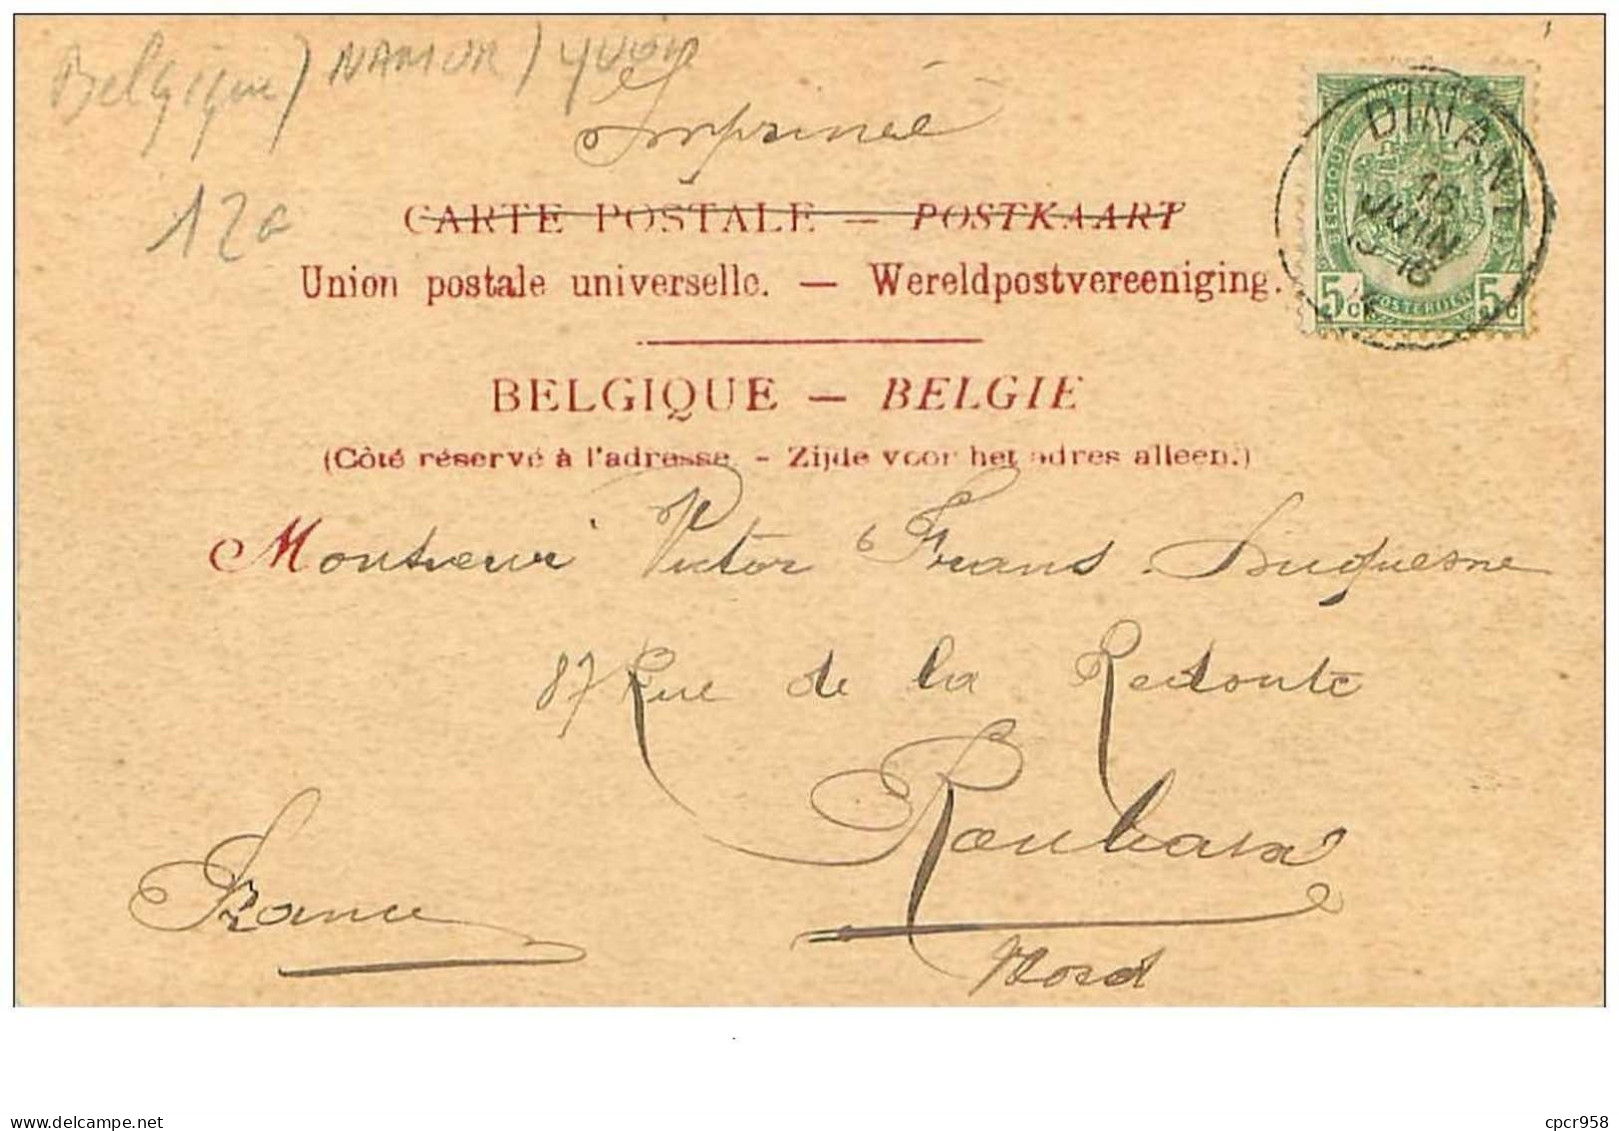 Belgique / NAMUR / yvoir
Imprimé
12a
CARTE POSTALE — POSTKAART
Union postale universelle. — Wereldpostvereeniging.
BELGIQUE — BELGIE
(Côté réservé à l'adresse. - Zijde voor het adres alleen.)
DINANT
16
JUIN
13-18
BELGIQUE
5c POSTERIJEN 5c
Monsieur Victor Frans Duquesne
87 Rue de la Redoute
Roubaix
France
Nord
delcampe.net
cpcr958